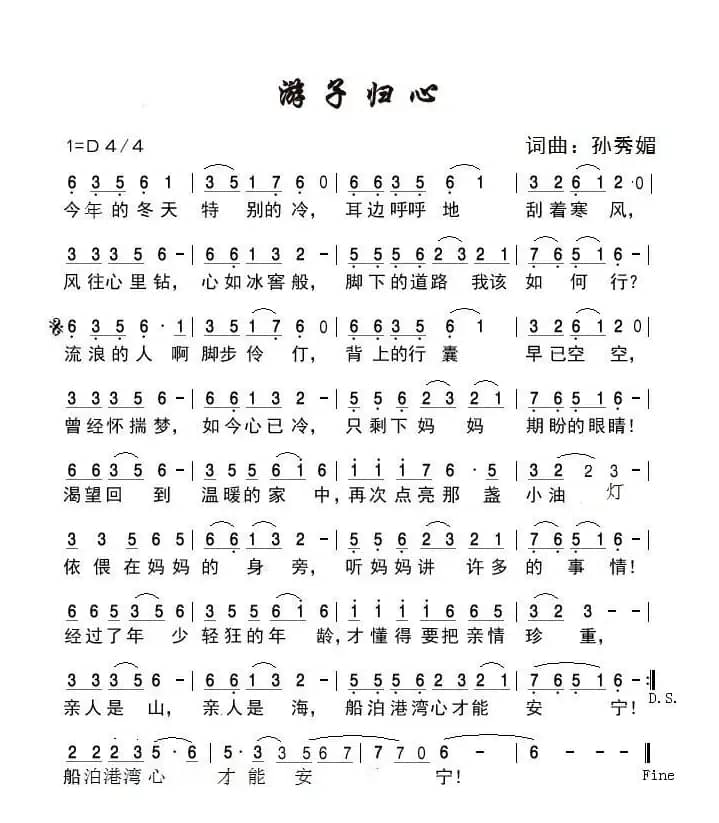 游子归心
1=D 4/4 词曲：孙秀媚
6 3 5 6 1 | 3 5 1 7 6 0 | 6 6 3 5 6 1 | 3 2 6 1 2·0 |
今年的冬天 特别的冷， 耳边呼呼地 刮着寒风，
3 3 3 5 6 - | 6 6 1 3 2 - | 5 5 5 6 2 3 2 1 | 7 6 5 1 6 - |
风往心里钻， 心如冰窖般， 脚下的道路 我该如何行？
6 3 5 6 · 1 | 3 5 1 7 6 0 | 6 6 3 5 6 1 | 3 2 6 1 2 - |
流浪的人啊 脚步伶仃， 背上的行囊 早已空空，
3 3 3 5 6 - | 6 6 1 3 2 - | 5 5 6 2 3 2 1 | 7 6 5 1 6 - |
曾经怀揣梦， 如今心已冷， 只剩下妈妈 期盼的眼睛！
6 6 3 5 6 - | 5 3 5 6 1 6 | 1 1 1 7 6 · 5 | 3 2 2 3 - |
渴望回到 温暖的家中，再次点亮那盏 小油灯
3 3 5 6 5 | 6 6 1 3 2 - | 5 5 5 6 3 2 1 | 7 6 5 1 6 - |
依偎在妈妈的身旁， 听妈妈讲许多的事情！
6 6 5 3 5 6 | 5 3 5 6 1 6 | 1 1 1 1 6 6 5 | 3 2 3 - - |
经过了年少轻狂的年龄，才懂得要把亲情珍重，
3 3 3 5 6 - | 6 6 1 3 2 - | 5 5 5 6 2 3 2 1 | 7 6 5 1 6 - :|
亲人是山， 亲人是海， 船泊港湾心才能安宁！ D.S.
2 2 2 3 5 · 6 | 5 · 3 3 5 6 7 | 7 7 0 6 - | 6 - - - |
船泊港湾心 才能安宁！ Fine